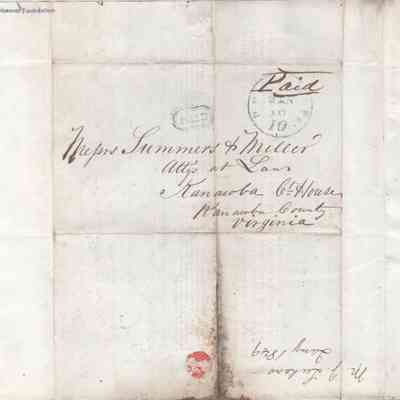 Foundation
Paid
PAID
JAN
10
Messrs Summers & Miller
Attys at Law
Kanawha Ct House
Kanawha County
Virginia
Jany 1849